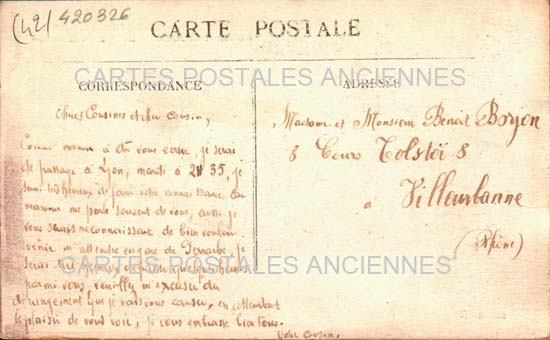 (42) 420326
CARTE POSTALE
CARTES POSTALES ANCIENNES
CORRESPONDANCE
ADRESSE
Chères Cousines et cher Cousin,
Comme maman a dû vous écrire, je serai
de passage à Lyon, mardi à 2H 35, je
suis très heureux de faire votre connaissance. Car
maman me parle souvent de vous, aussi je
vous serais reconnaissant de bien vouloir
venir m'attendre en gare de Perrache, je
serai très heureux de passer quelques heures
parmi vous, veuillez m'excuser du
dérangement que je vais vous causer, en attendant
le plaisir de vous voir, je vous embrasse bien tous.
Votre Cousin.
Madame et Monsieur Benoit Borjon
8 Cours Tolstoï 8
à Villeurbanne
(Rhône)
CARTES POSTALES ANCIENNES